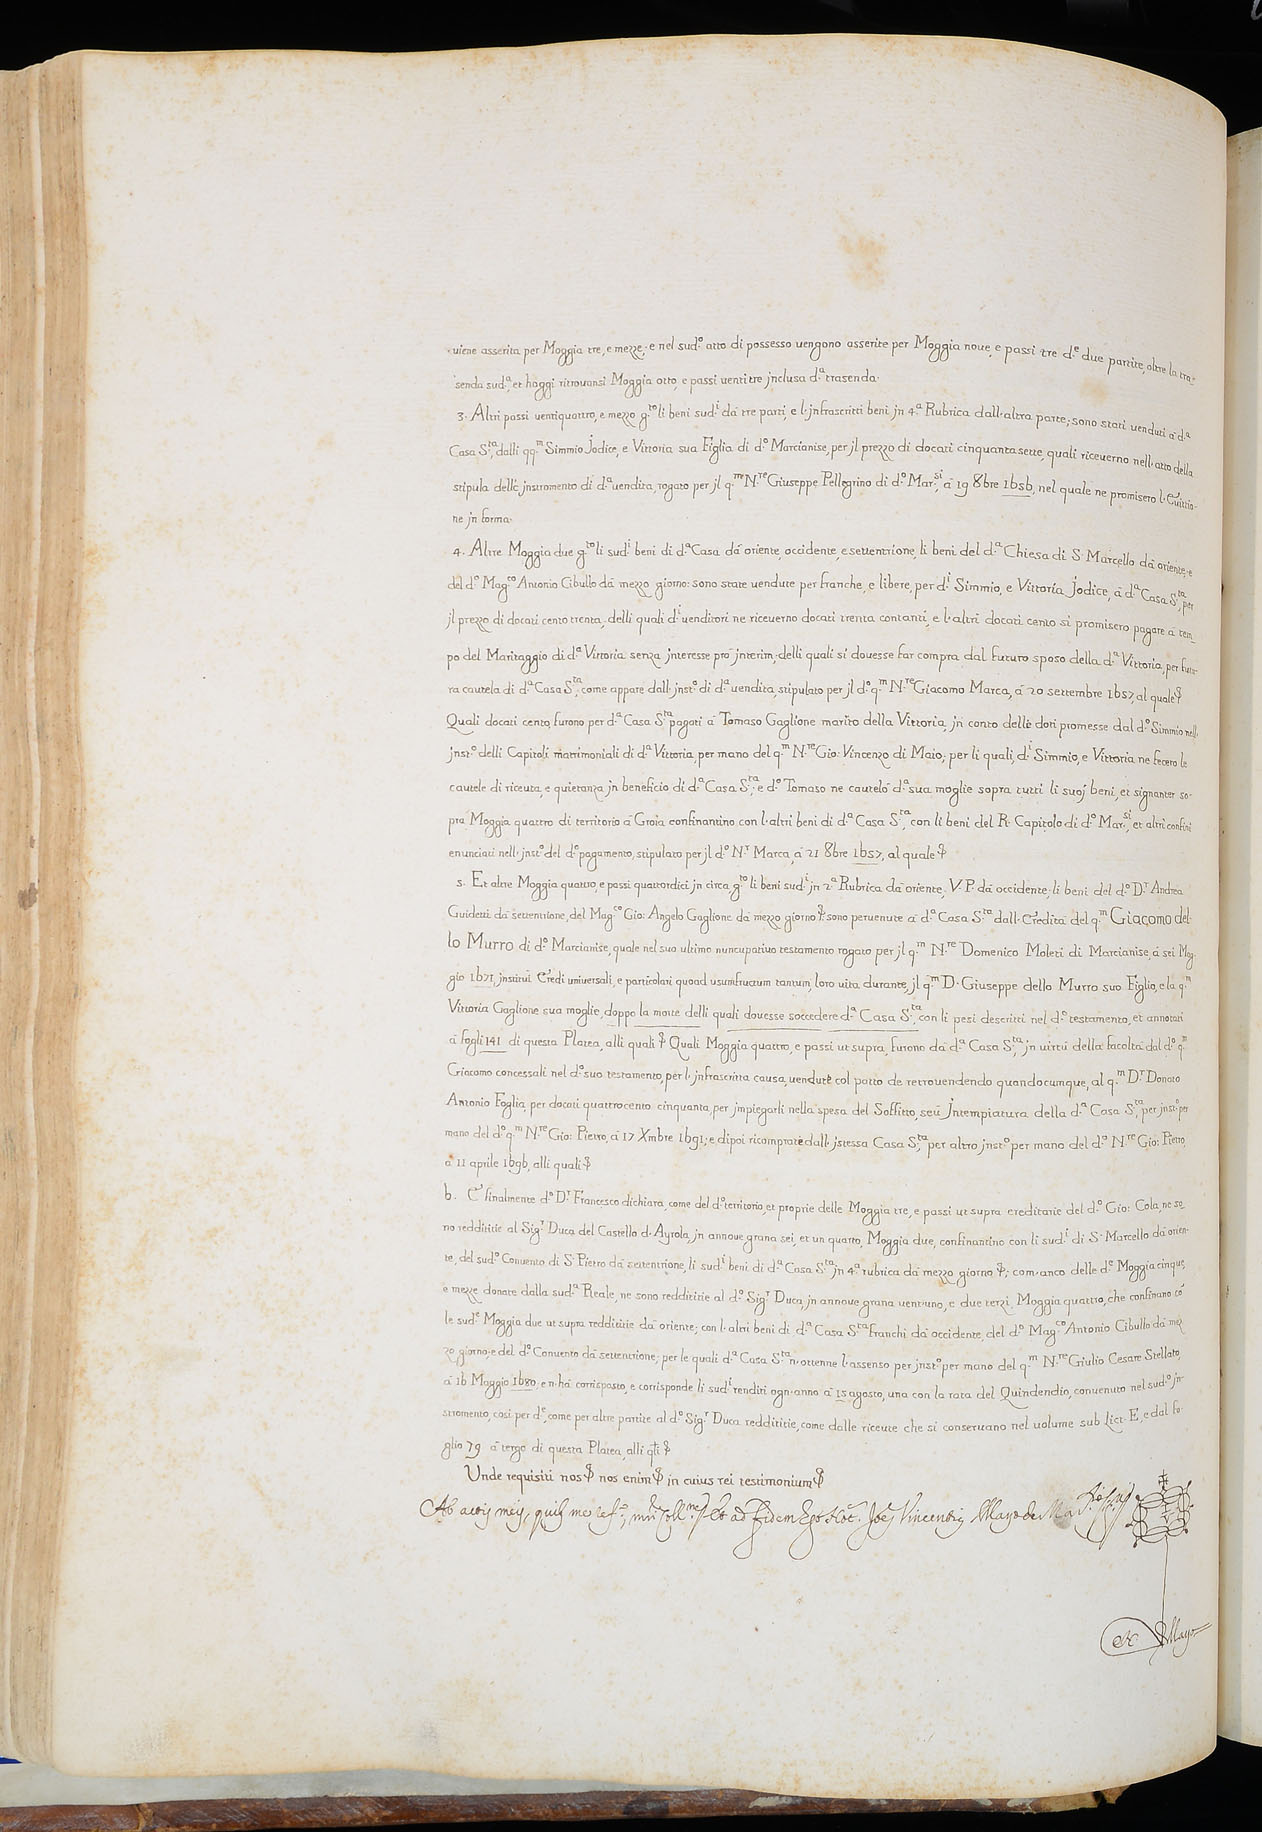 uiene asserita per Moggia tre, e mezze; e nel sud.º atto di possesso uengono asserite per Moggia noue, e passi tre d.e due partite, oltre la tra=
senda sud.ª, et hoggi ritrouansi Moggia otto, e passi uentitre jnclusa d.ª trasenda.
3. Altri passi uentiquattro, e mezzo g.to li beni sud.i dà tre parti, e l'jnfrascritti beni jn 4.ª Rubrica dall'altra parte; sono stati uenduti à d.ª
Casa S.ta, dalli qq.m Simmio Jodice, e Vittoria sua Figlia di d.º Marcianise, per jl prezzo di docati cinquantasette, quali riceuerno nell'atto della
stipula dell'jnstromento di d.ª uendita, rogato per jl q.m N.re Giuseppe Pellegrino di d.º Mar.si, à 19 8bre 1656, nel quale ne promisero l'Euittio-
ne jn forma.
4. Altre Moggia due g.to li sud.i beni di d.ª Casa dà oriente, occidente, e settentrione, li beni del d.ª Chiesa di S. Marcello dà oriente; e
del d.º Mag.co Antonio Cibullo dà mezzo giorno: sono state uendute per franche, e libere, per d.i Simmio, e Vittoria Jodice, à d.ª Casa S.ta, per
jl prezzo di docati cento trenta, delli quali d.i uenditori ne riceuerno docati trenta contanti, e l'altri docati cento si promisero pagare à tem
po del Maritaggio di d.ª Vittoria senza jnteresse prò jnterim; delli quali si douesse far compra dal futuro sposo della d.ª Vittoria, per futu-
ra cautela di d.ª Casa S.ta, come appare dall'jnst.º di d.ª uendita, stipulato per jl d.º q.m N.re Giacomo Marca, à 20 settembre 1657, al quale &
Quali docati cento, furono per d.ª Casa S.ta pagati à Tomaso Gaglione marito della Vittoria, jn conto delle doti promesse dal d.º Simmio nell'
jnst.º delli Capitoli matrimoniali di d.ª Vittoria, per mano del q.m N.re Gio: Vincenzo di Maio; per li quali, d.i Simmio, e Vittoria ne fecero le
cautele di riceuta, e quietanza jn beneficio di d.ª Casa S.ta; e d.º Tomaso ne cautelò d.ª sua moglie sopra tutti li suoj beni, et signanter so-
pra Moggia quattro di territorio à Groia confinantino con l'altri beni di d.ª Casa S.ta, con li beni del R. Capitolo di d.º Mar.si, et altri confini
enunciati nell'jnst.º del d.º pagamento, stipulato per jl d.º N.r Marca, à 21 8bre 1657, al quale &
5. Et altre Moggia quattro, e passi quattordici jn circa, g.to li beni sud.i jn 2.ª Rubrica dà oriente, V. P. dà occidente, li beni del d.º D.r Andrea
Guidetti dà settentrione, del Mag.co Gio: Angelo Gaglione dà mezzo giorno &: sono peruenute à d.ª Casa S.ta dall'Eredità del q.m Giacomo del-
lo Murro di d.º Marcianise, quale nel suo ultimo nuncupatiuo testamento rogato per jl q.m N.re Domenico Moleti di Marcianise, à sei Mag-
gio 1671, jnstituì Eredi uniuersali, e particolari quoad usumfructum tantum, loro uita durante, jl q.m D. Giuseppe dello Murro suo Figlio, e la q.m
Vittoria Gaglione sua moglie, doppo la morte delli quali douesse soccedere d.ª Casa S.ta, con li pesi descritti nel d.º testamento, et annotati
à fogli 141 di questa Platea, alli quali & Quali Moggia quattro, e passi ut supra, furono dà d.ª Casa S.ta, jn uirtù della facoltà dal d.º q.m
Giacomo concessali nel d.º suo testamento, per l'jnfrascritta causa, uendute col patto de retrouendendo quandocumque, al q.m D.r Donato
Antonio Foglia, per docati quattrocento cinquanta, per jmpiegarli nella spesa del Soffitto, seù Jntempiatura della d.ª Casa S.ta, per jnst.º per
mano del d.º q.m N.re Gio: Pietro, à 17 Xmbre 1691; e dipoi ricomprate dall'jstessa Casa S.ta, per altro jnst.º per mano del d.º N.re Gio: Pietro,
à 11 aprile 1696, alli quali &
6. E finalmente d.º D.r Francesco dichiara, come del d.º territorio, et proprie delle Moggia tre, e passi ut supra ereditarie del d.º Gio: Cola, ne so
no reddititie al Sig.r Duca del Castello d'Ayrola, jn annoue grana sei, et un quarto, Moggia due, confinantino con li sud.i di S. Marcello dà orien-
te, del sud.º Conuento di S. Pietro dà settentrione, li sud.i beni di d.ª Casa S.ta jn 4.ª rubrica dà mezzo giorno &; com'anco delle d.e Moggia cinque,
e mezze donate dalla sud.ª Reale, ne sono reddititie al d.º Sig.r Duca, jn annoue grana uentiuno, e due terzi, Moggia quattro, che confinano cò
le sud.e Moggia due ut supra reddititie dà oriente; con l'altri beni di d.ª Casa S.ta franchi dà occidente, del d.º Mag.co Antonio Cibullo dà mez
zo giorno, e del d.º Conuento dà settentrione; per le quali d.ª Casa S.ta n'ottenne l'assenso per jnst.º per mano del q.m N.re Giulio Cesare Stellato,
à 16 Maggio 1680; e n'hà corrisposto, e corrisponde li sud.i renditi ogn'anno à 15 agosto, una con la rata del Quindendio, conuenuto nel sud.º jn-
stromento, così per d.e, come per altre partite al d.º Sig.r Duca reddititie, come dalle riceute che si conseruano nel uolume sub Lict. E, e dal fo-
glio 79 à tergo di questa Platea, alli q.li &
Unde requisiti nos & nos enim & in cuius rei testimonium &
Ab actis meis, quib.s me ref.º, Et ad Fidem Ego Not. Joēs Vincentius Mayo de
Mayo